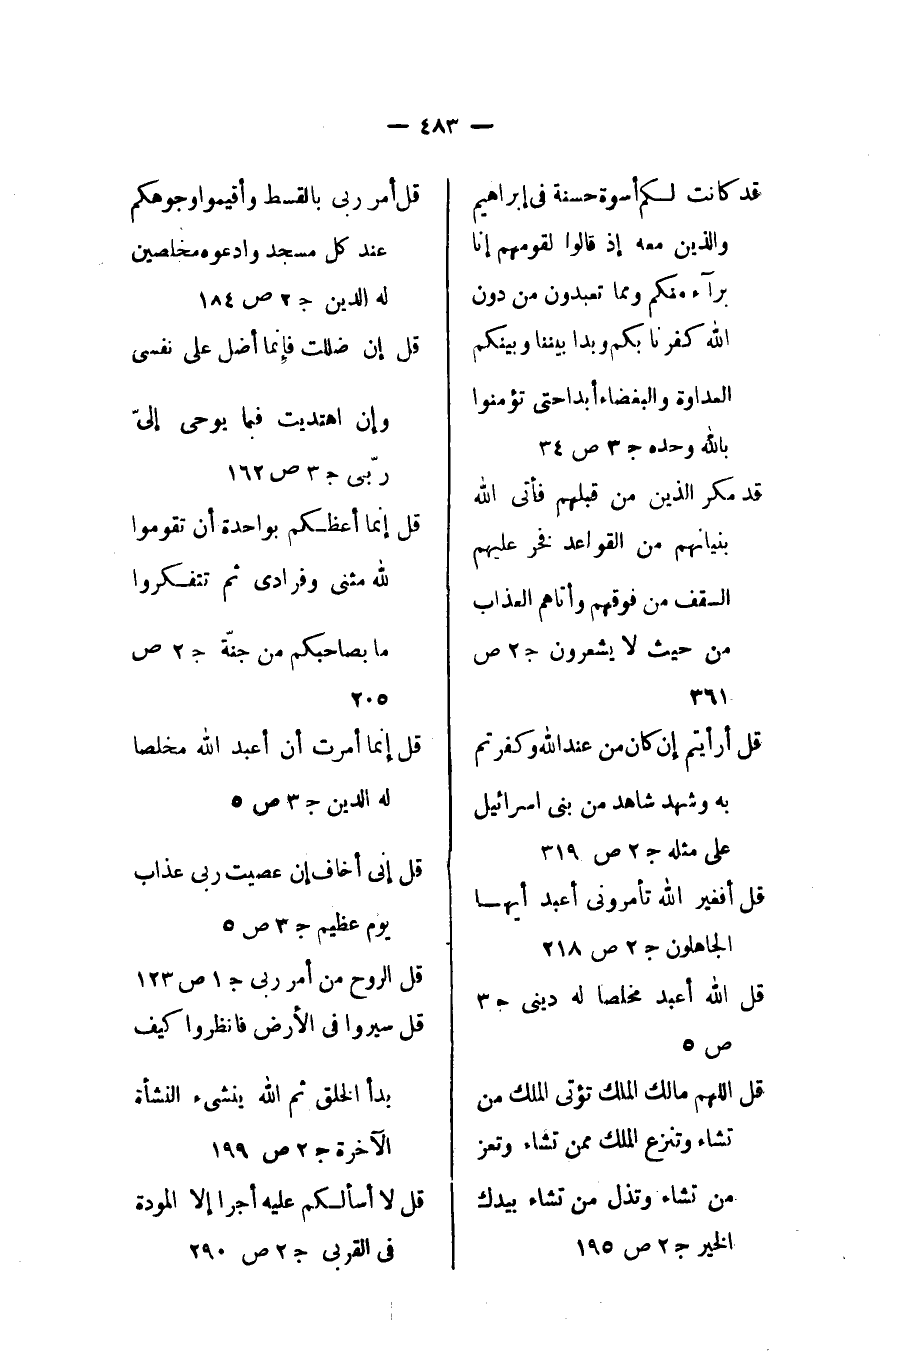 — ٤٨٣ —
قد كانت لكم أسوة حسنة فى إبراهيم
والذين معه إذ قالوا لقومهم إنا
برآء منكم ومما تعبدون من دون
الله كفرنا بكم وبدا بيننا وبينكم
العداوة والبغضاء أبدا حتى تؤمنوا
بالله وحده ج ٣ ص ٣٤
قد مكر الذين من قبلهم فأتى الله
بنيانهم من القواعد فخر عليهم
السقف من فوقهم وأتاهم العذاب
من حيث لا يشعرون ج ٢ ص
٣٦١
قل أرأيتم إن كان من عند الله وكفرتم
به وشهد شاهد من بنى اسرائيل
على مثله ج ٢ ص ٣١٩
قل أفغير الله تأمرونى أعبد أيها
الجاهلون ج ٢ ص ٢١٨
قل الله أعبد مخلصا له دينى ج ٣
ص ٥
قل اللهم مالك الملك تؤتى الملك من
تشاء وتنزع الملك ممن تشاء وتعز
من تشاء وتذل من تشاء بيدك
الخير ج ٢ ص ١٩٥
قل أمر ربى بالقسط وأقيموا وجوهكم
عند كل مسجد وادعوه مخلصين
له الدين ج ٢ ص ١٨٤
قل إن ضللت فإنما أضل على نفسى
وإن اهتديت فبما يوحى إلىّ
ربّى ج ٣ ص ١٦٢
قل إنما أعظكم بواحدة أن تقوموا
لله مثنى وفرادى ثم تتفكروا
ما بصاحبكم من جنّة ج ٢ ص
٢٠٥
قل إنما أمرت أن أعبد الله مخلصا
له الدين ج ٣ ص ٥
قل إنى أخاف إن عصيت ربى عذاب
يوم عظيم ج ٣ ص ٥
قل الروح من أمر ربى ج ١ ص ١٢٣
قل سيروا فى الأرض فانظروا كيف
بدأ الخلق ثم الله ينشىء النشأة
الآخرة ج ٢ ص ١٩٩
قل لا أسألكم عليه أجرا إلا المودة
فى القربى ج ٢ ص ٢٩٠